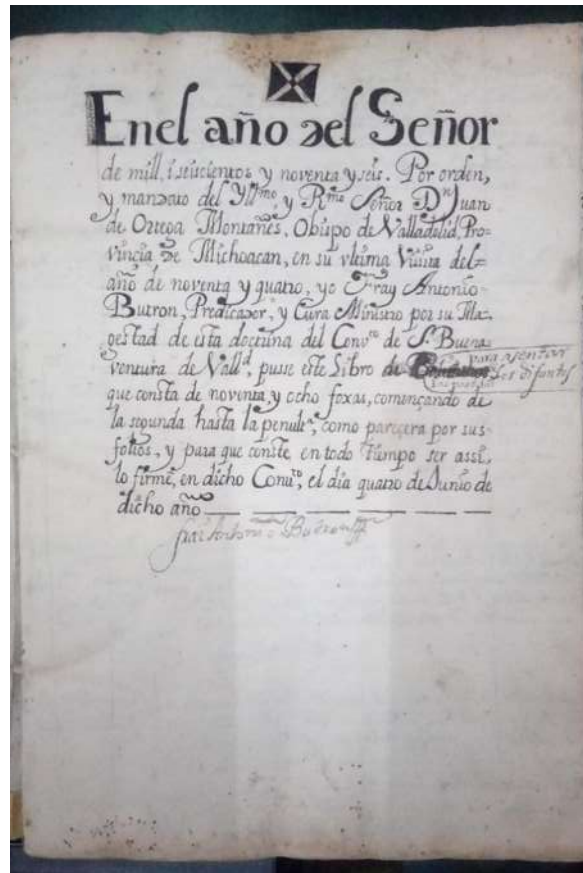 En el año del Señor
de mill, i seiscientos y noventa y seis. Por orden,
y mandato del Yll.mo y R.mo Señor D.n Juan
de Ortega Montañes, Obispo de Valladolid, Pro-
vincia de Michoacan, en su vltima Visita del=
año de noventa y quatro, yo Fray Antonio
Butron, Predicador, y Cura Ministro por su Ma-
gestad de esta doctrina del Conv.to de S. Buena
ventura de Vall.d, puse este Libro de para asentar
los difuntos
que consta de noventa, y ocho foxas, començando de
la segunda hasta la penult.a, como pareçera por sus
folios, y para que conste en todo tiempo ser assi,
lo firmè, en dicho Conv.to, el dia quatro de Junio de
dicho año
frai Antonio Butron